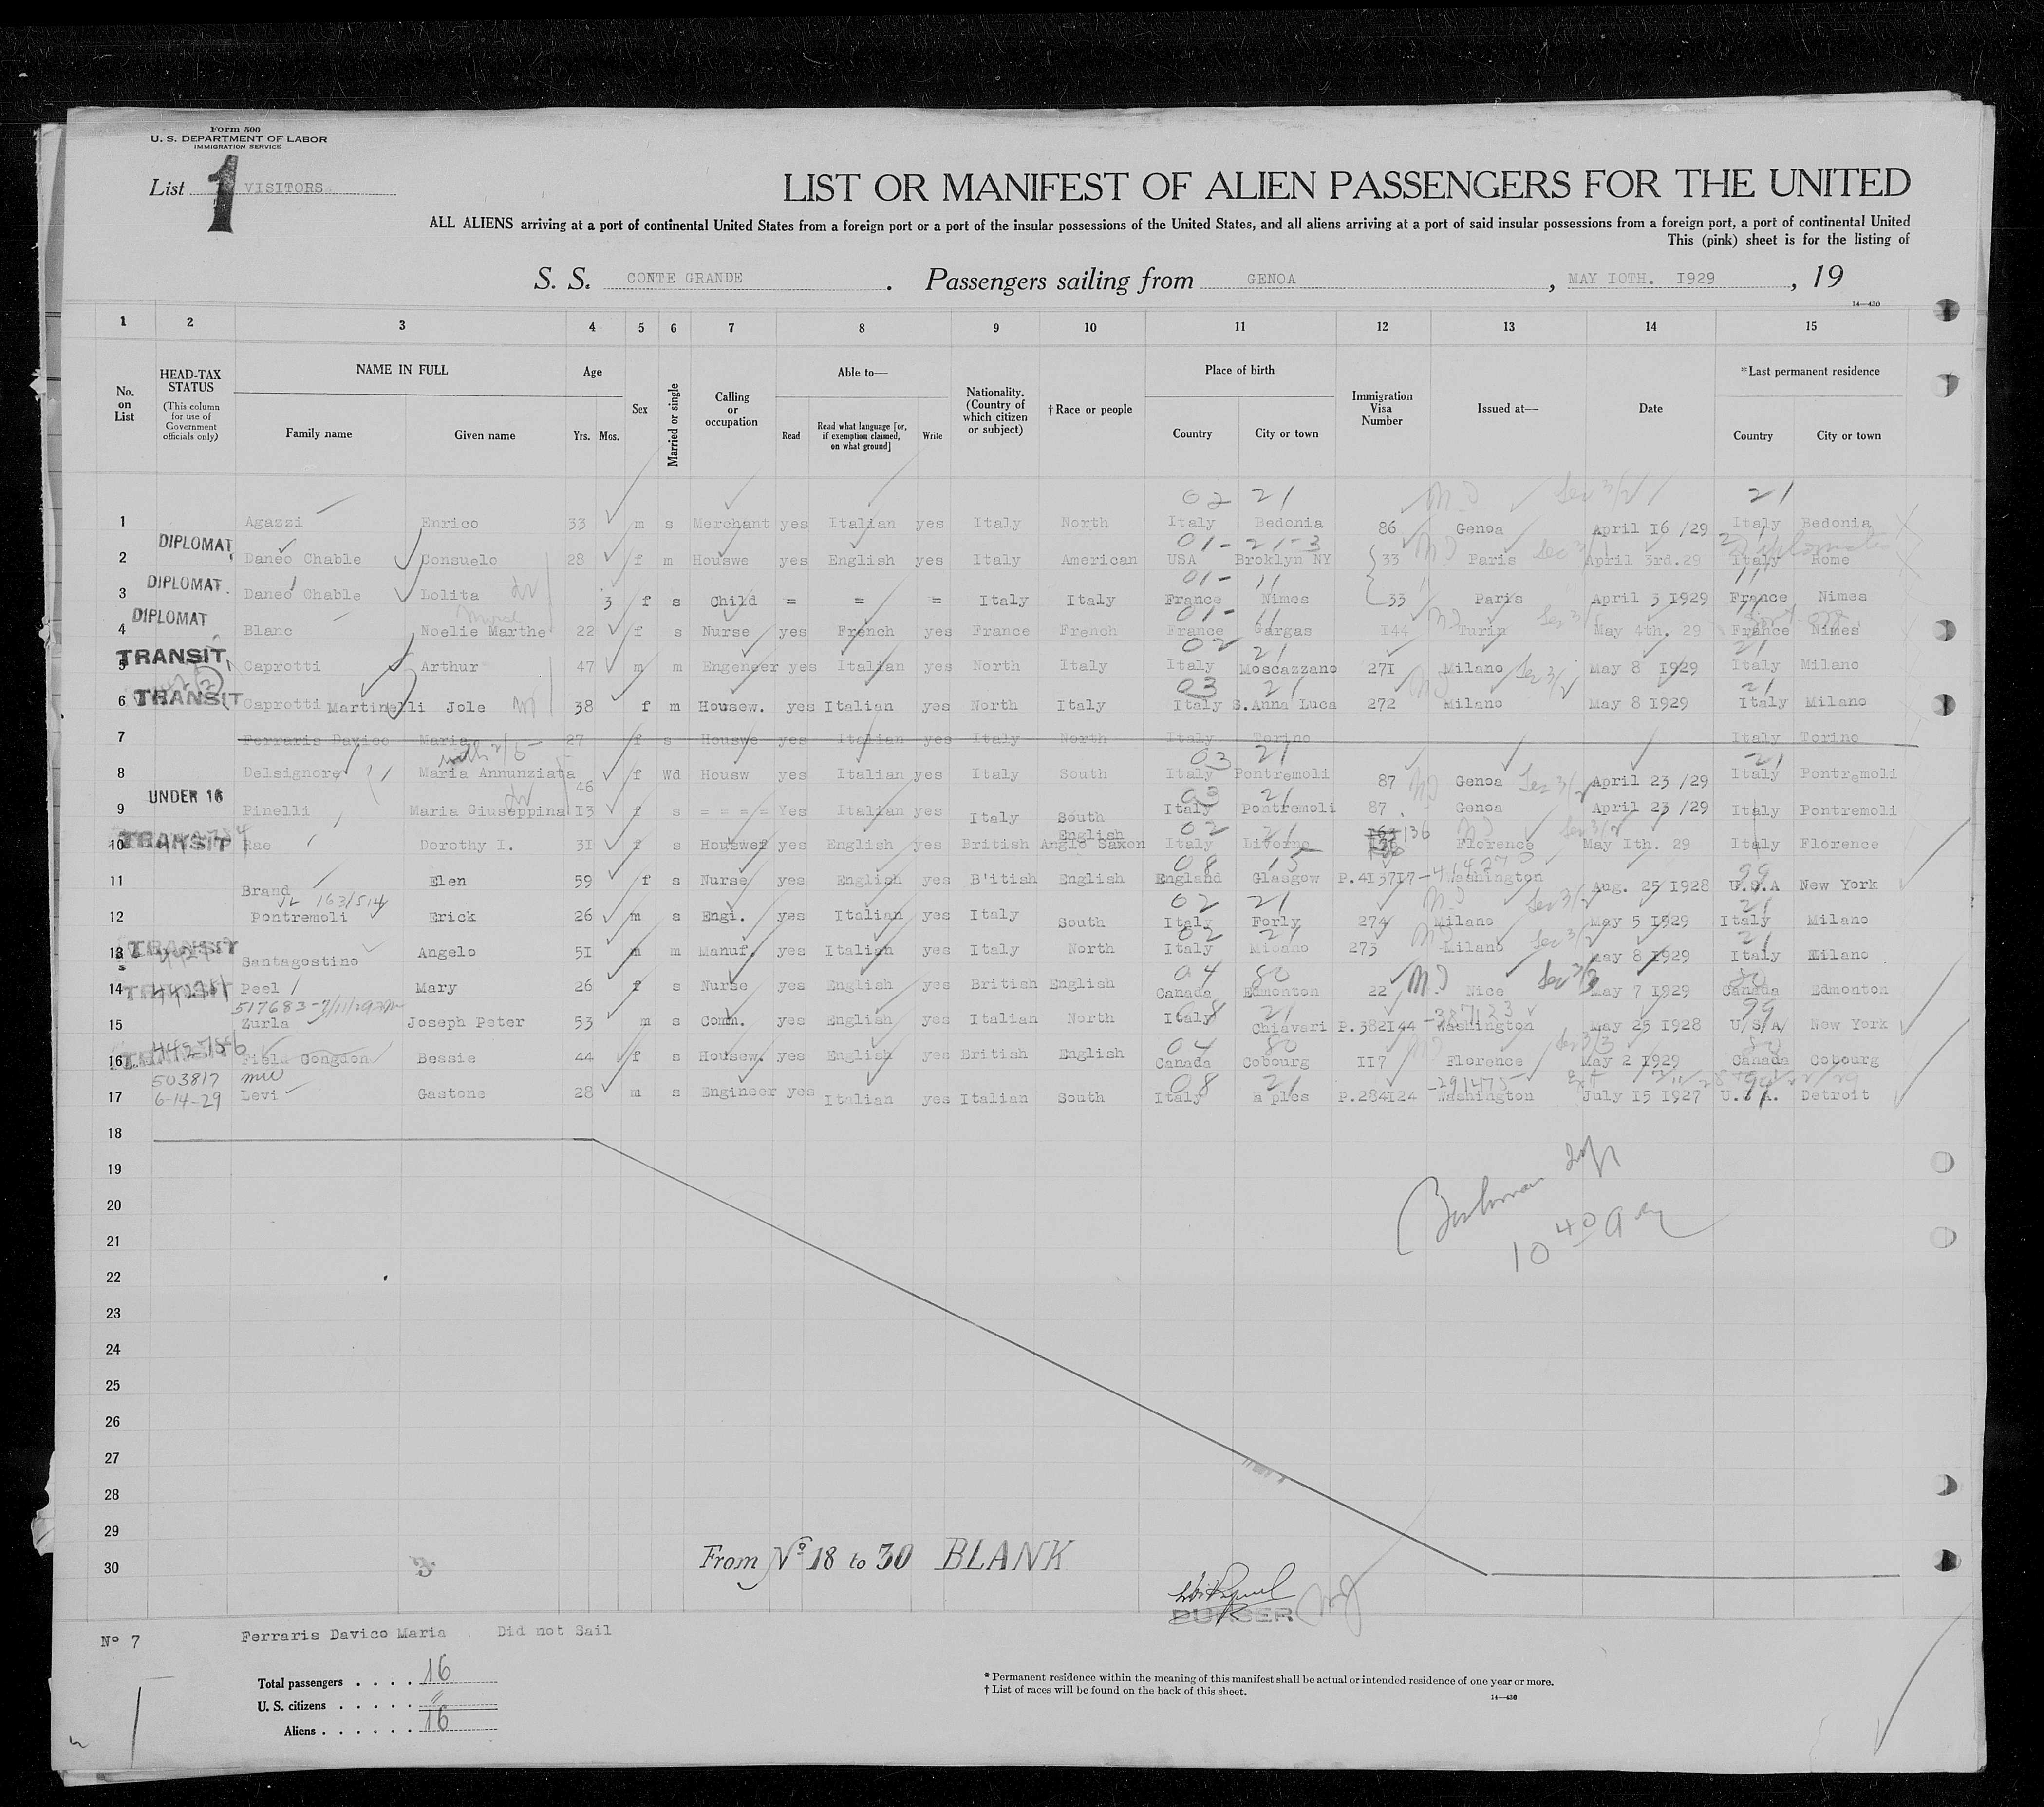 Form 500
U. S. DEPARTMENT OF LABOR
IMMIGRATION SERVICE
List 1 VISITORS
LIST OR MANIFEST OF ALIEN PASSENGERS FOR THE UNITED
ALL ALIENS arriving at a port of continental United States from a foreign port or a port of the insular possessions of the United States, and all aliens arriving at a port of said insular possessions from a foreign port, a port of continental United
This (pink) sheet is for the listing of
S. S. CONTE GRANDE. Passengers sailing from GENOA, MAY IOTH. I929, 19
14—430
1 2 3 4 5 6 7 8 9 10 11 12 13 14 15
No. on List
HEAD-TAX STATUS (This column for use of Government officials only)
NAME IN FULL Family name Given name
Age Yrs. Mos.
Sex
Married or single
Calling or occupation
Able to— Read Read what language [or, if exemption claimed, on what ground] Write
Nationality. (Country of which citizen or subject)
†Race or people
Place of birth Country City or town
Immigration Visa Number
Issued at—
Date
*Last permanent residence Country City or town
02 21 21
1 Agazzi Enrico 33 m s Merchant yes Italian yes Italy North Italy Bedonia 86 Genoa April I6 /29 Italy Bedonia
01- 21-3
2 DIPLOMAT Daneo Chable Consuelo 28 f m Houswe yes English yes Italy American USA Broklyn NY 33 Paris April 3rd.29 Italy Rome
01- 11 11
3 DIPLOMAT. Daneo Chable Lolita 3 f s Child = = = Italy Italy France Nimes 33 Paris April 3 I929 France Nimes
Nurse 01- 11 11
4 DIPLOMAT Blanc Noelie Marthe 22 f s Nurse yes French yes France French France Gargas I44 Turin May 4th. 29 France Nimes
02 21 21
5 TRANSIT Caprotti Arthur 47 m m Engeneer yes Italian yes North Italy Italy Moscazzano 27I Milano May 8 I929 Italy Milano
03 21 21
6 TRANSIT Caprotti Martinelli Jole 38 f m Housew. yes Italian yes North Italy Italy S.Anna Luca 272 Milano May 8 I929 Italy Milano
7 Ferraris Davico Maria 27 f s Houswe yes Italian yes Italy North Italy Torino Italy Torino
03 21 21
8 Delsignore Maria Annunziata 46 f Wd Housw yes Italian yes Italy South Italy Pontremoli 87 Genoa April 23 /29 Italy Pontremoli
03 21
9 UNDER 16 Pinelli Maria Giuseppina I3 f s = = = = Yes Italian yes Italy South Italy Pontremoli 87 Genoa April 23 /29 Italy Pontremoli
02 21
10 TRANSIT Rae Dorothy I. 3I f s Houswef yes English yes British English Anglo Saxon Italy Livorno 136 Florence May Ith. 29 Italy Florence
08 13 99
11 Brand Elen 59 f s Nurse yes English yes B'itish English England Glasgow P.4I37I7 Washington Aug. 25 I928 U.S.A New York
163/514 02 21 21
12 Pontremoli Erick 26 m s Engi. yes Italian yes Italy South Italy Forly 274 Milano May 5 I929 Italy Milano
02 21 21
13 TRANSIT Santagostino Angelo 5I m m Manuf. yes Italian yes Italy North Italy Milano 273 Milano May 8 I929 Italy Milano
04 80 80
14 TRANSIT Peel Mary 26 f s Nurse yes English yes British English Canada Edmonton 22 Nice May 7 I929 Canada Edmonton
517683 21 -387123 99
15 Zurla Joseph Peter 53 m s Comm. yes English yes Italian North Italy Chiavari P.382I44 Washington May 25 I928 U/S/A/ New York
442786 04 80 80
16 TRANSIT Field Congdon Bessie 44 f s Housew. yes English yes British English Canada Cobourg II7 Florence May 2 I929 Canada Cobourg
503817 08 21 -291475
17 6-14-29 Levi Gastone 28 m s Engineer yes Italian yes Italian South Italy a ples P.284I24 Washington July I5 I927 U.S.A. Detroit
18
19
20
21
10 40 am
22
23
24
25
26
27
28
29
From Nº 18 to 30 BLANK
30
PURSER
Nº 7 Ferraris Davico Maria Did not Sail
Total passengers . . . . 16
U. S. citizens . . . . . "
Aliens . . . . . . 16
* Permanent residence within the meaning of this manifest shall be actual or intended residence of one year or more.
† List of races will be found on the back of this sheet.
14—430